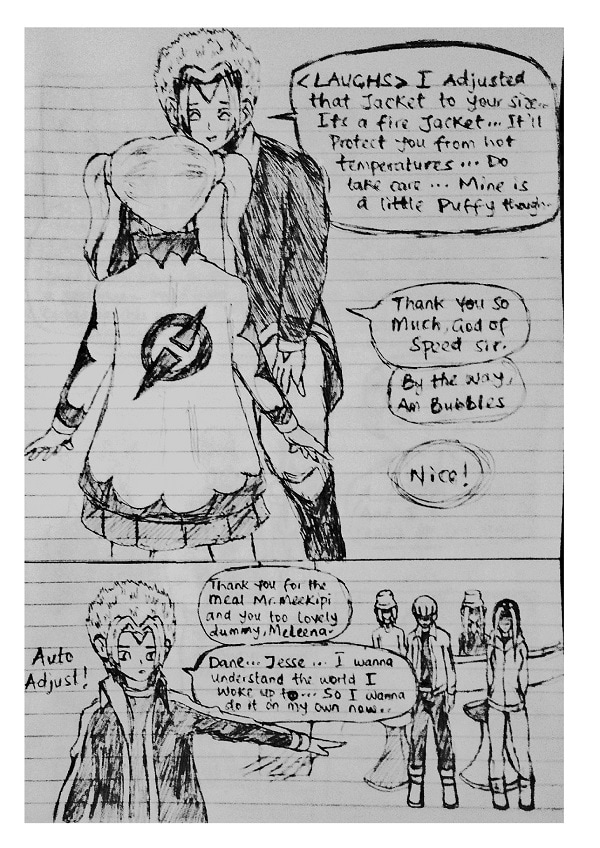 <LAUGHS> I Adjusted
that Jacket to your size..
Its a fire Jacket... It'll
Protect you from hot
temperatures... Do
take care... Mine is
a little Puffy though..
Thank you so
Much, God of
Speed sir.
By the way,
Am Bubbles
Nice!
Thank you for the
meal Mr. Meekipi
and you too lovely
dummy, Meleena~
Auto
Adjust!
Dane... Jesse... I wanna
understand the world I
woke up to... So I wanna
do it on my own now..